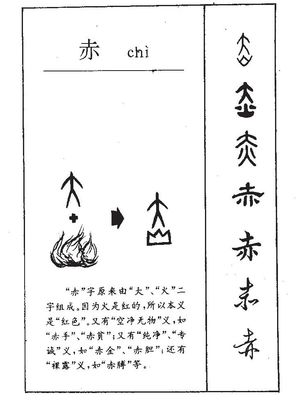 赤 chì
“赤”字原来由“大”、“火”二
字组成。因为火是红的,所以本义
是“红色”。又有“空净无物”义,如
“赤手”、“赤贫”;又有“纯净”、“专
诚”义,如“赤金”、“赤胆”;还有
“裸露”义,如“赤膊”等。
赤
赤
赤
赤
赤
赤
赤